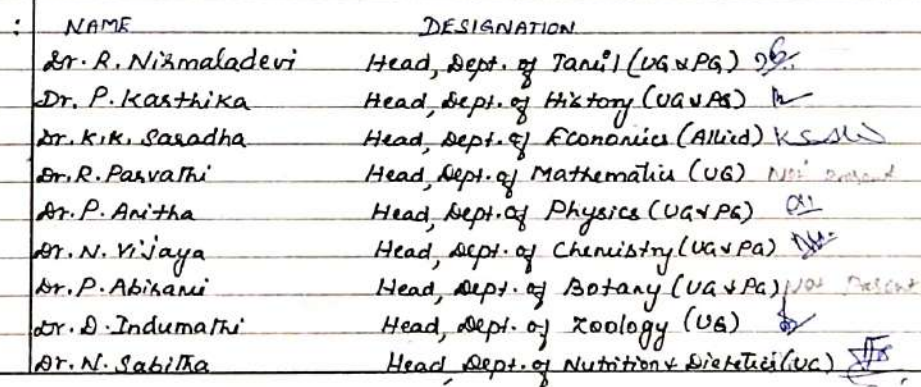 : NAME DESIGNATION
Dr. R. Nirmaladevi Head, Dept. of Tamil (UG & PG)
Dr. P. Karthika Head, Dept. of History (UG & PG)
Dr. K.K. Saradha Head, Dept. of Economics (Allied)
Dr. R. Parvathi Head, Dept. of Mathematics (UG) Not present
Dr. P. Anitha Head, Dept. of Physics (UG & PG)
Dr. N. Vijaya Head, Dept. of Chemistry (UG & PG)
Dr. P. Abirami Head, Dept. of Botany (UG & PG) Not Present
Dr. D. Indumathi Head, Dept. of Zoology (UG)
Dr. N. Sabitha Head, Dept. of Nutrition & Dietetics (UG)